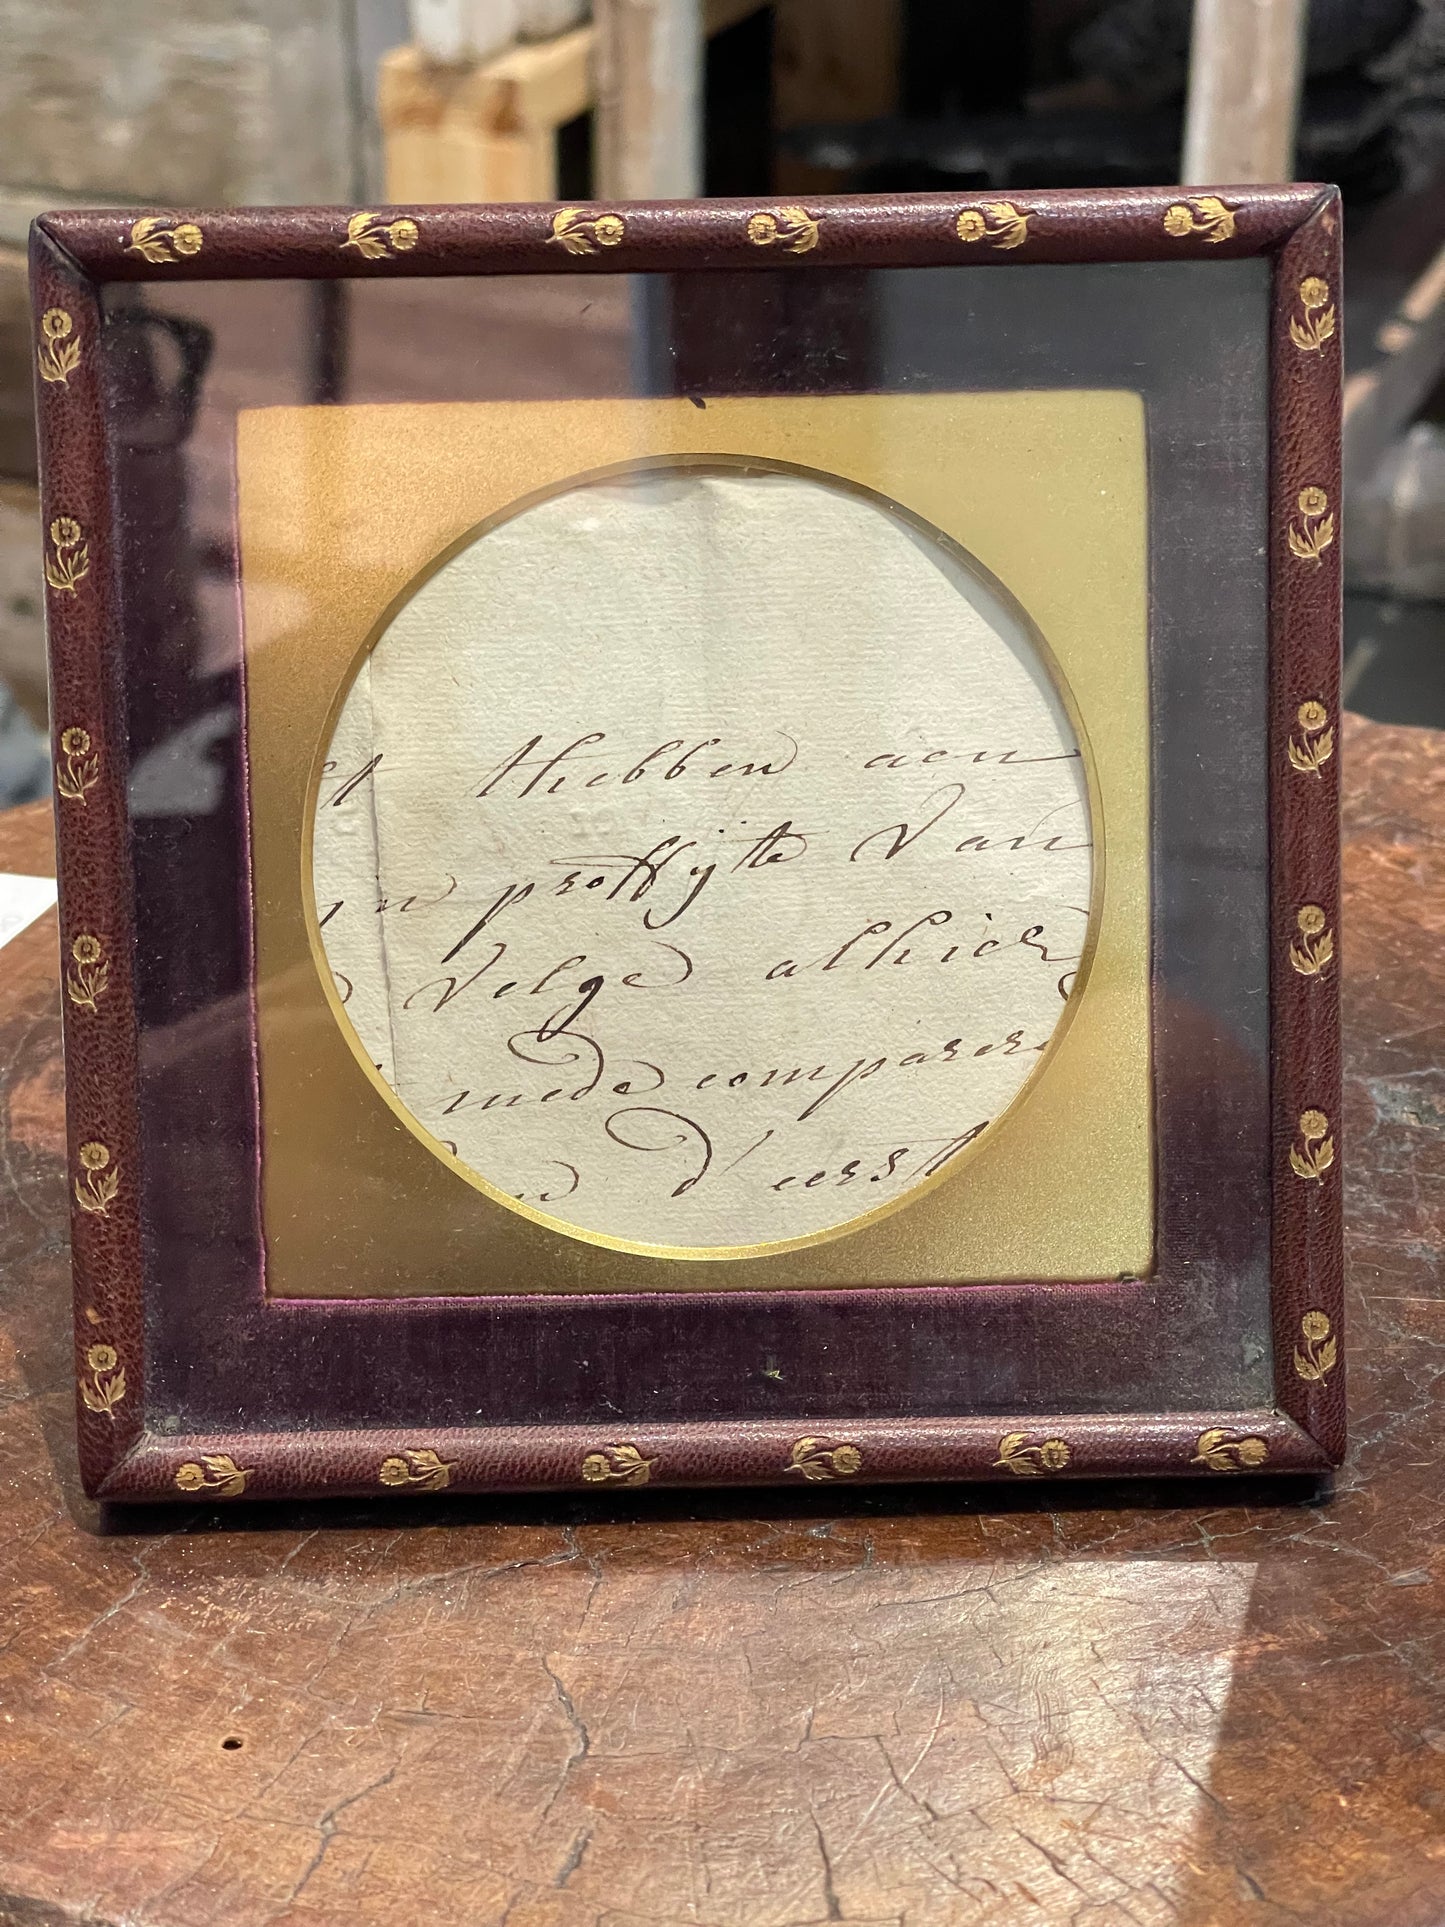 t thebben aen
en proffyte Van
Volge alhier
mede comparere
d' eerst